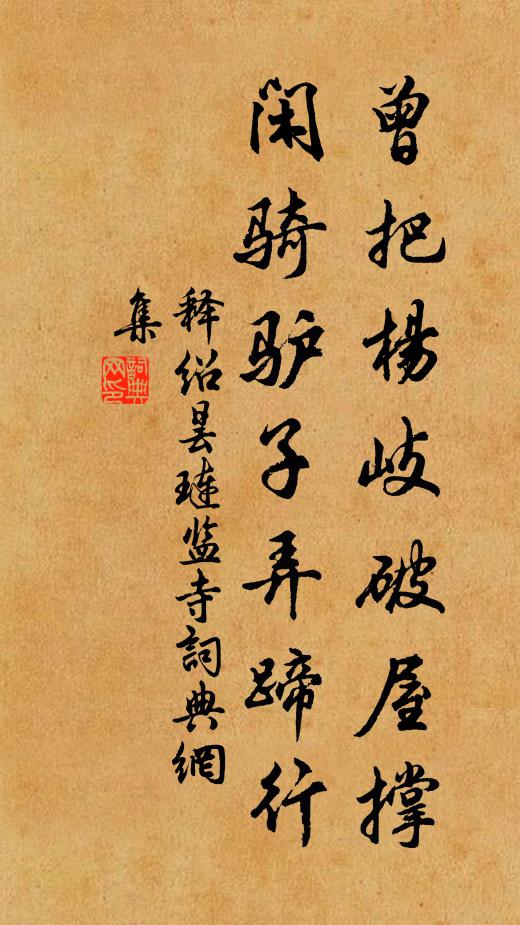 曾把楊岐破屋撑
闲骑驴子弄蹄行
释绍昙琏监寺詞典網
集
詞典网印